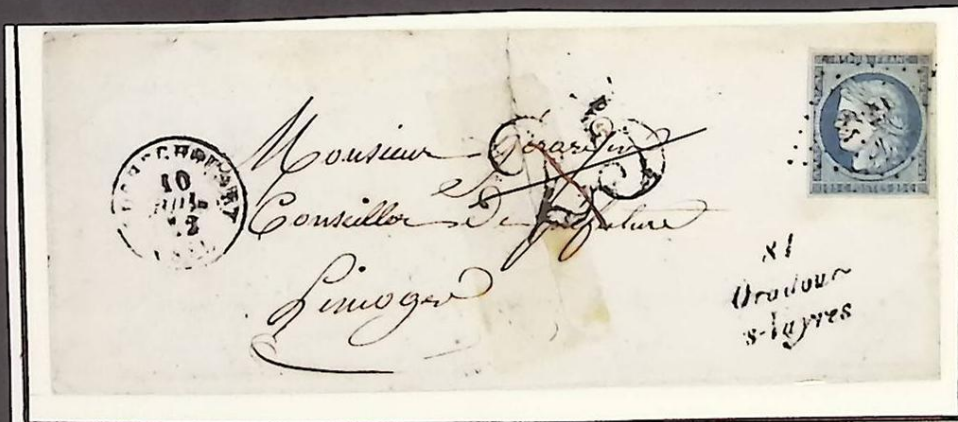 ROCHECHOUART
10
JUIL.
52
Monsieur Girardin
Conseiller de préfecture
Limoges
25
81
Oradour
s-Vayres